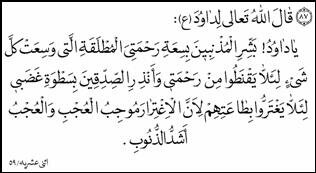 ٨٧ قَالَ اللهُ تَعَالٰى لِدَاوُدَ (ع):
يَادَاوُدُ! بَشِّرِ الْمُذْنِبِينَ بِسِعَةِ رَحْمَتِىَ الْمُطْلَقَةِ الَّتِى وَسِعَتْ كُلَّ
شَىْءٍ لِئَلَّا يَقْنَطُوا مِنْ رَحْمَتِى وَأَنْذِرِ الصِّدِّقِينَ بِسَطْوَةِ غَضَبِى
لِئَلَّا يَغْتَرُّوا بِطَاعَتِهِمْ لِأَنَّ الْاِغْتِرَارَ مُوجِبُ الْعُجْبِ وَالْعُجْبُ
أَشَدُّ الذُّنُوبِ.
اثنى عشريه / ٥٩